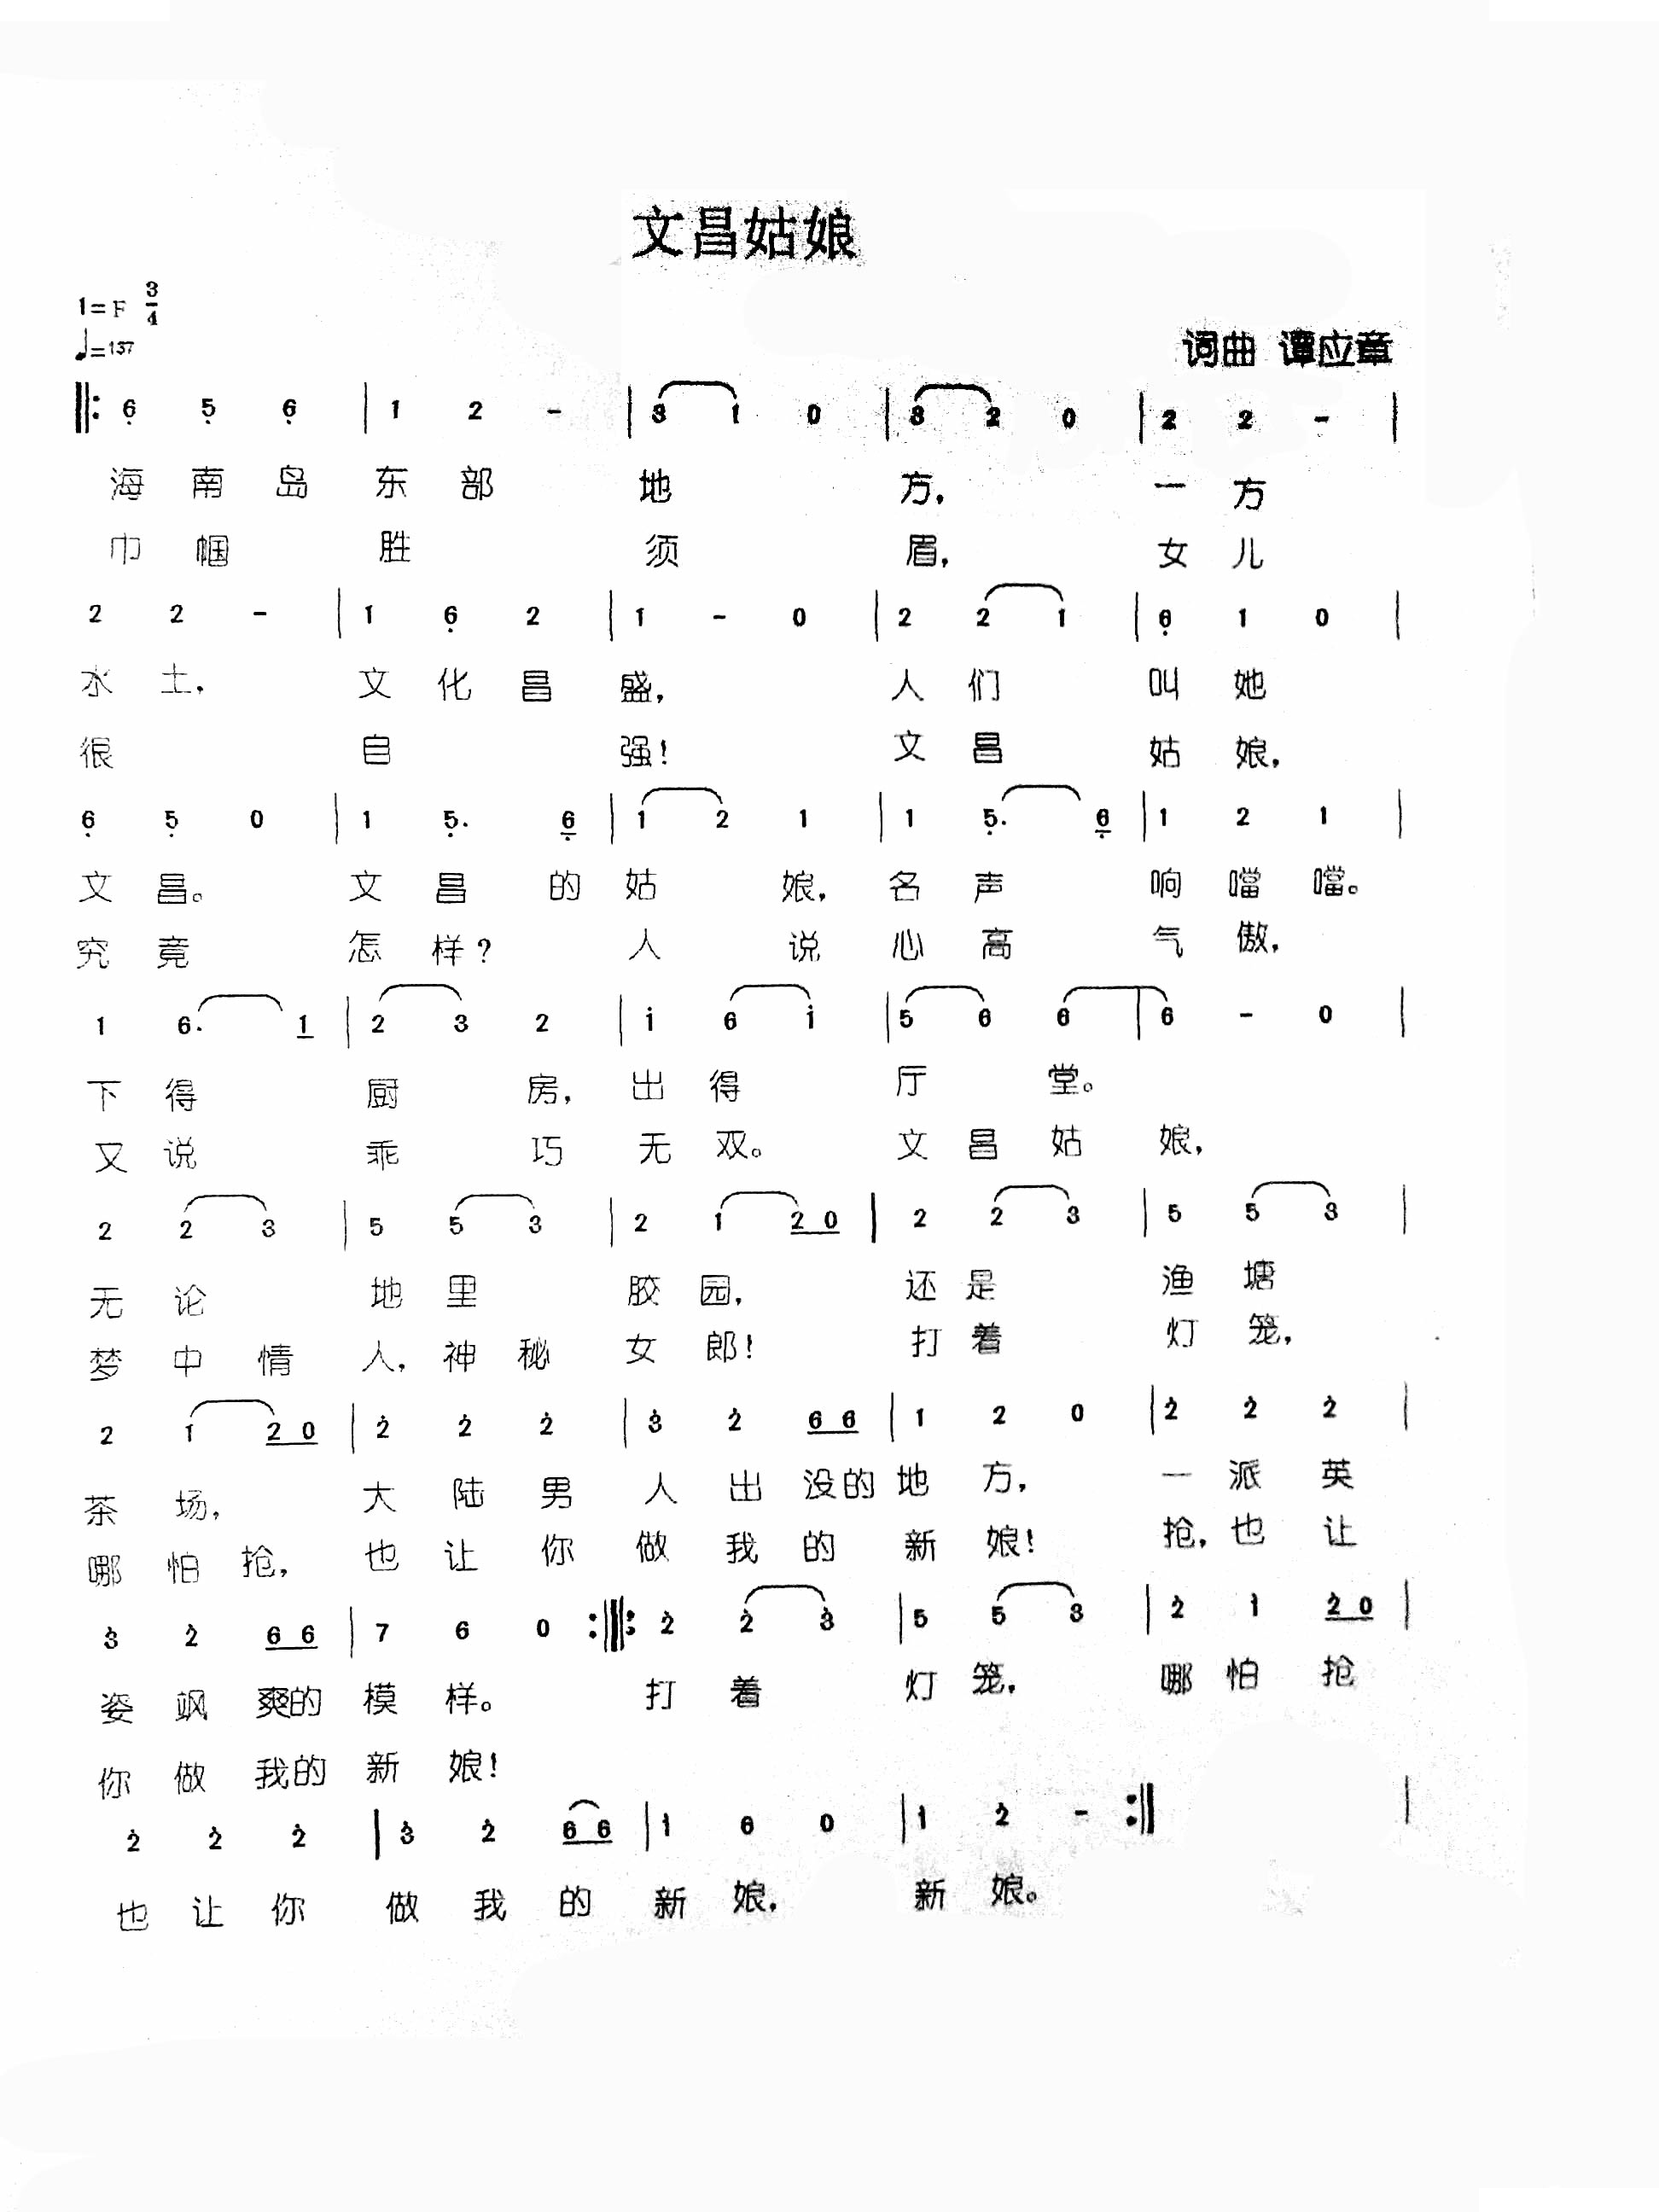 文昌姑娘
1=F 3/4
♩=137
词曲 谭应章
‖: 6̣ 5̣ 6̣ | 1 2 - | 3 1 0 | 3 2 0 | 2 2 - |
海南岛 东部 地 方, 一方
巾帼 胜 须 眉, 女儿
2 2 - | 1 6̣ 2 | 1 - 0 | 2 2 1 | 6̣ 1 0 |
水土, 文化昌 盛, 人们 叫她
很 自 强! 文昌 姑娘,
6̣ 5̣ 0 | 1 5̣. 6̣ | 1 2 1 | 1 5̣. 6̣ | 1 2 1 |
文昌。 文昌的 姑 娘, 名声 响噹噹。
究竟 怎样? 人 说 心高 气傲,
1 6. 1 | 2 3 2 | i 6 i | 5 6 6 | 6 - 0 |
下得 厨 房, 出得 厅 堂。
又说 乖 巧 无双。 文昌姑 娘,
2 2 3 | 5 5 3 | 2 1 2 0 | 2 2 3 | 5 5 3 |
无论 地里 胶园, 还是 渔塘
梦中情 人, 神秘 女郎! 打着 灯笼,
2 1 2 0 | 2̇ 2̇ 2̇ | 3̇ 2̇ 6 6 | 1 2 0 | 2̇ 2̇ 2̇ |
茶场, 大陆男 人出没的 地方, 一派英
哪怕抢, 也让你 做我的 新娘! 抢, 也让
3̇ 2̇ 6 6 | 7 6 0 :‖: 2̇ 2̇ 3̇ | 5 5 3 | 2̇ i 2 0 |
姿飒爽的 模样。 打着 灯笼, 哪怕抢
你做我的 新娘!
2̇ 2̇ 2̇ | 3̇ 2̇ 6 6 | i 6 0 | i 2̇ - :‖ |
也让你 做我的 新娘, 新娘。